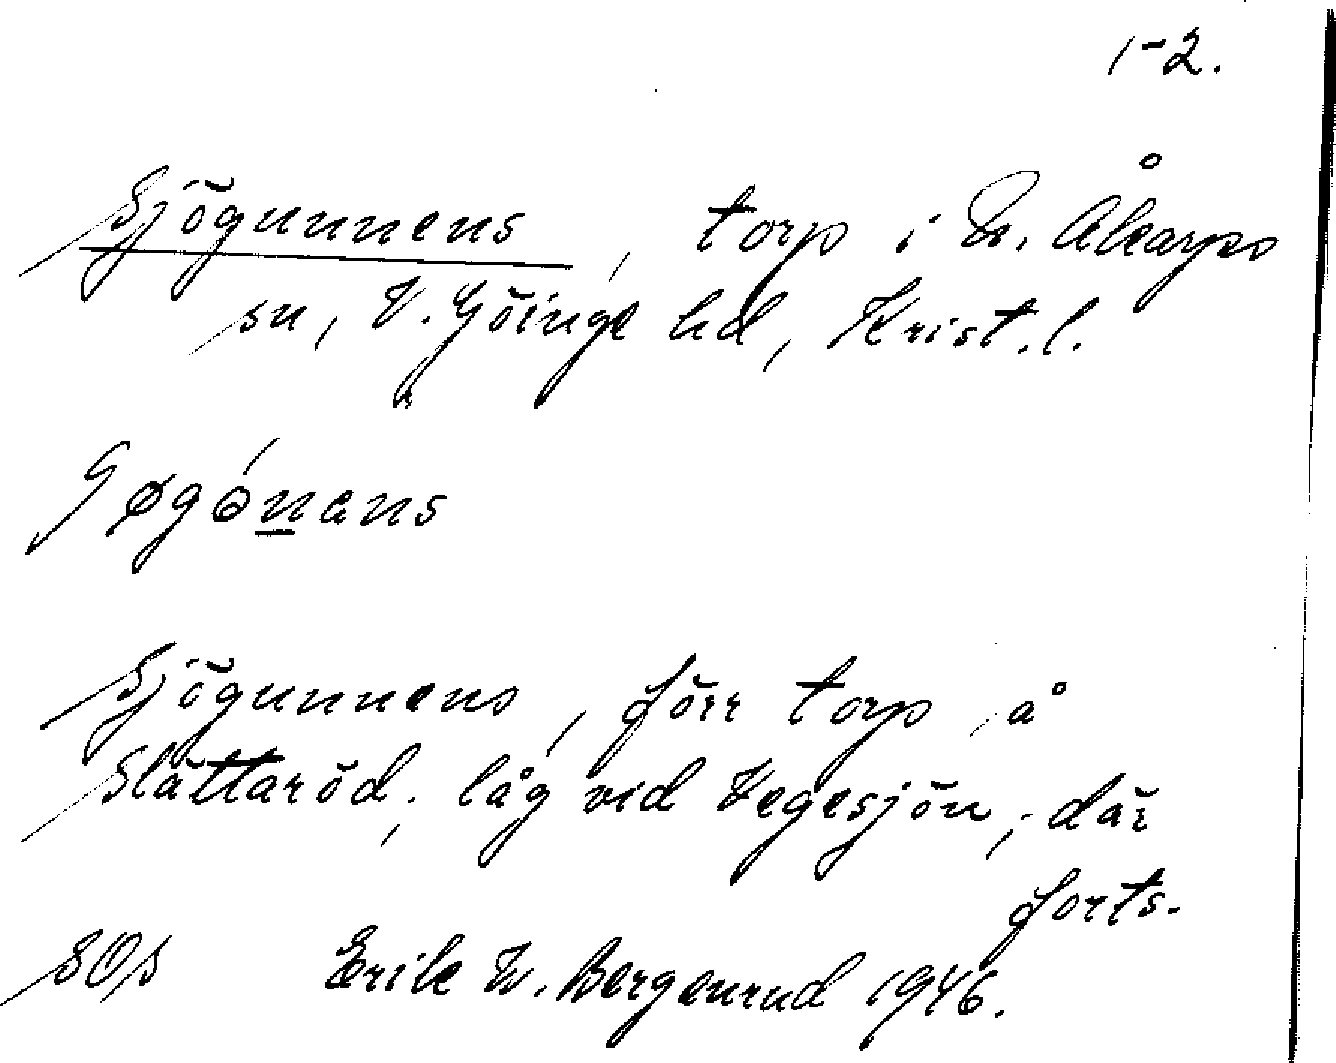 1-2.
Sjögunnens, torp i N. Åkarps
sn, V. Göinge hd, Krist. l.
Sjögunnens, förr torp å
Slättaröd; låg vid Vegesjön; där
forts.
SOS Erik W. Bergenrud 1946.